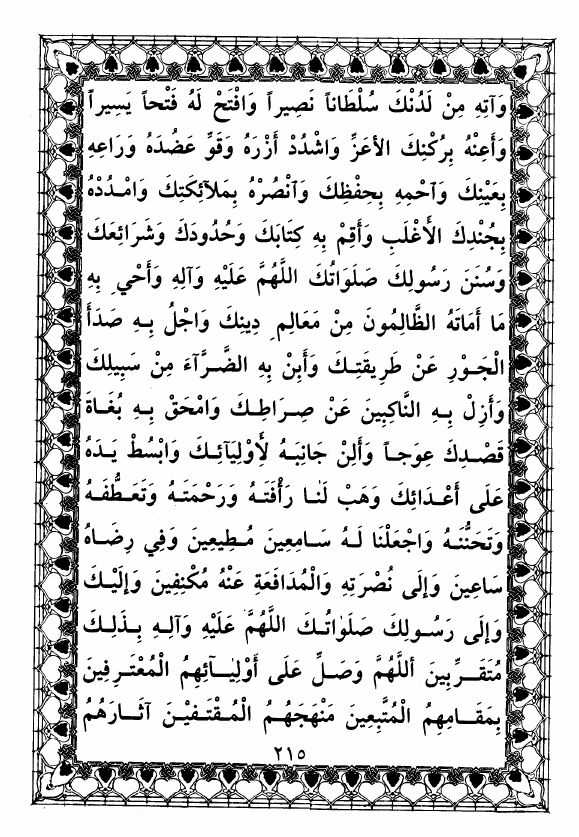 وَآتِهِ مِنْ لَدُنْكَ سُلْطَاناً نَصِيراً وَافْتَحْ لَهُ فَتْحاً يَسِيراً
وَأَعِنْهُ بِرُكْنِكَ الأَعَزِّ وَاشْدُدْ أَزْرَهُ وَقَوِّ عَضُدَهُ وَرَاعِهِ
بِعَيْنِكَ وَآحْمِهِ بِحِفْظِكَ وَآنْصُرْهُ بِمَلاَئِكَتِكَ وَامْدُدْهُ
بِجُنْدِكَ الأَغْلَبِ وَأَقِمْ بِهِ كِتَابَكَ وَحُدُودَكَ وَشَرَائِعَكَ
وَسُنَنَ رَسُولِكَ صَلَوَاتُكَ اللَّهُمَّ عَلَيْهِ وَآلِهِ وَأَحْيِ بِهِ
مَا أَمَاتَهُ الظَّالِمُونَ مِنْ مَعَالِمِ دِينِكَ وَاجْلُ بِهِ صَدَأَ
الْجَوْرِ عَنْ طَرِيقَتِكَ وَأَبِنْ بِهِ الضَّرَّآءَ مِنْ سَبِيلِكَ
وَأَزِلْ بِهِ النَّاكِبِينَ عَنْ صِرَاطِكَ وَامْحَقْ بِهِ بُغَاةَ
قَصْدِكَ عِوَجاً وَأَلِنْ جَانِبَهُ لأَوْلِيَآئِكَ وَابْسُطْ يَدَهُ
عَلَى أَعْدَائِكَ وَهَبْ لَنَا رَأْفَتَهُ وَرَحْمَتَهُ وَتَعَطُّفَهُ
وَتَحَنُّنَهُ وَاجْعَلْنَا لَهُ سَامِعِينَ مُطِيعِينَ وَفِي رِضَاهُ
سَاعِينَ وَإِلَى نُصْرَتِهِ وَالْمُدَافَعَةِ عَنْهُ مُكْنِفِينَ وَإِلَيْكَ
وَإِلَى رَسُولِكَ صَلَوَاتُكَ اللَّهُمَّ عَلَيْهِ وَآلِهِ بِذَلِكَ
مُتَقَرِّبِينَ أللَّهُمَّ وَصَلِّ عَلَى أَوْلِيَآئِهِمُ الْمُعْتَرِفِينَ
بِمَقَامِهِمُ الْمُتَّبِعِينَ مَنْهَجَهُمُ الْمُقْتَفِيْنَ آثَارَهُمُ
٢١٥